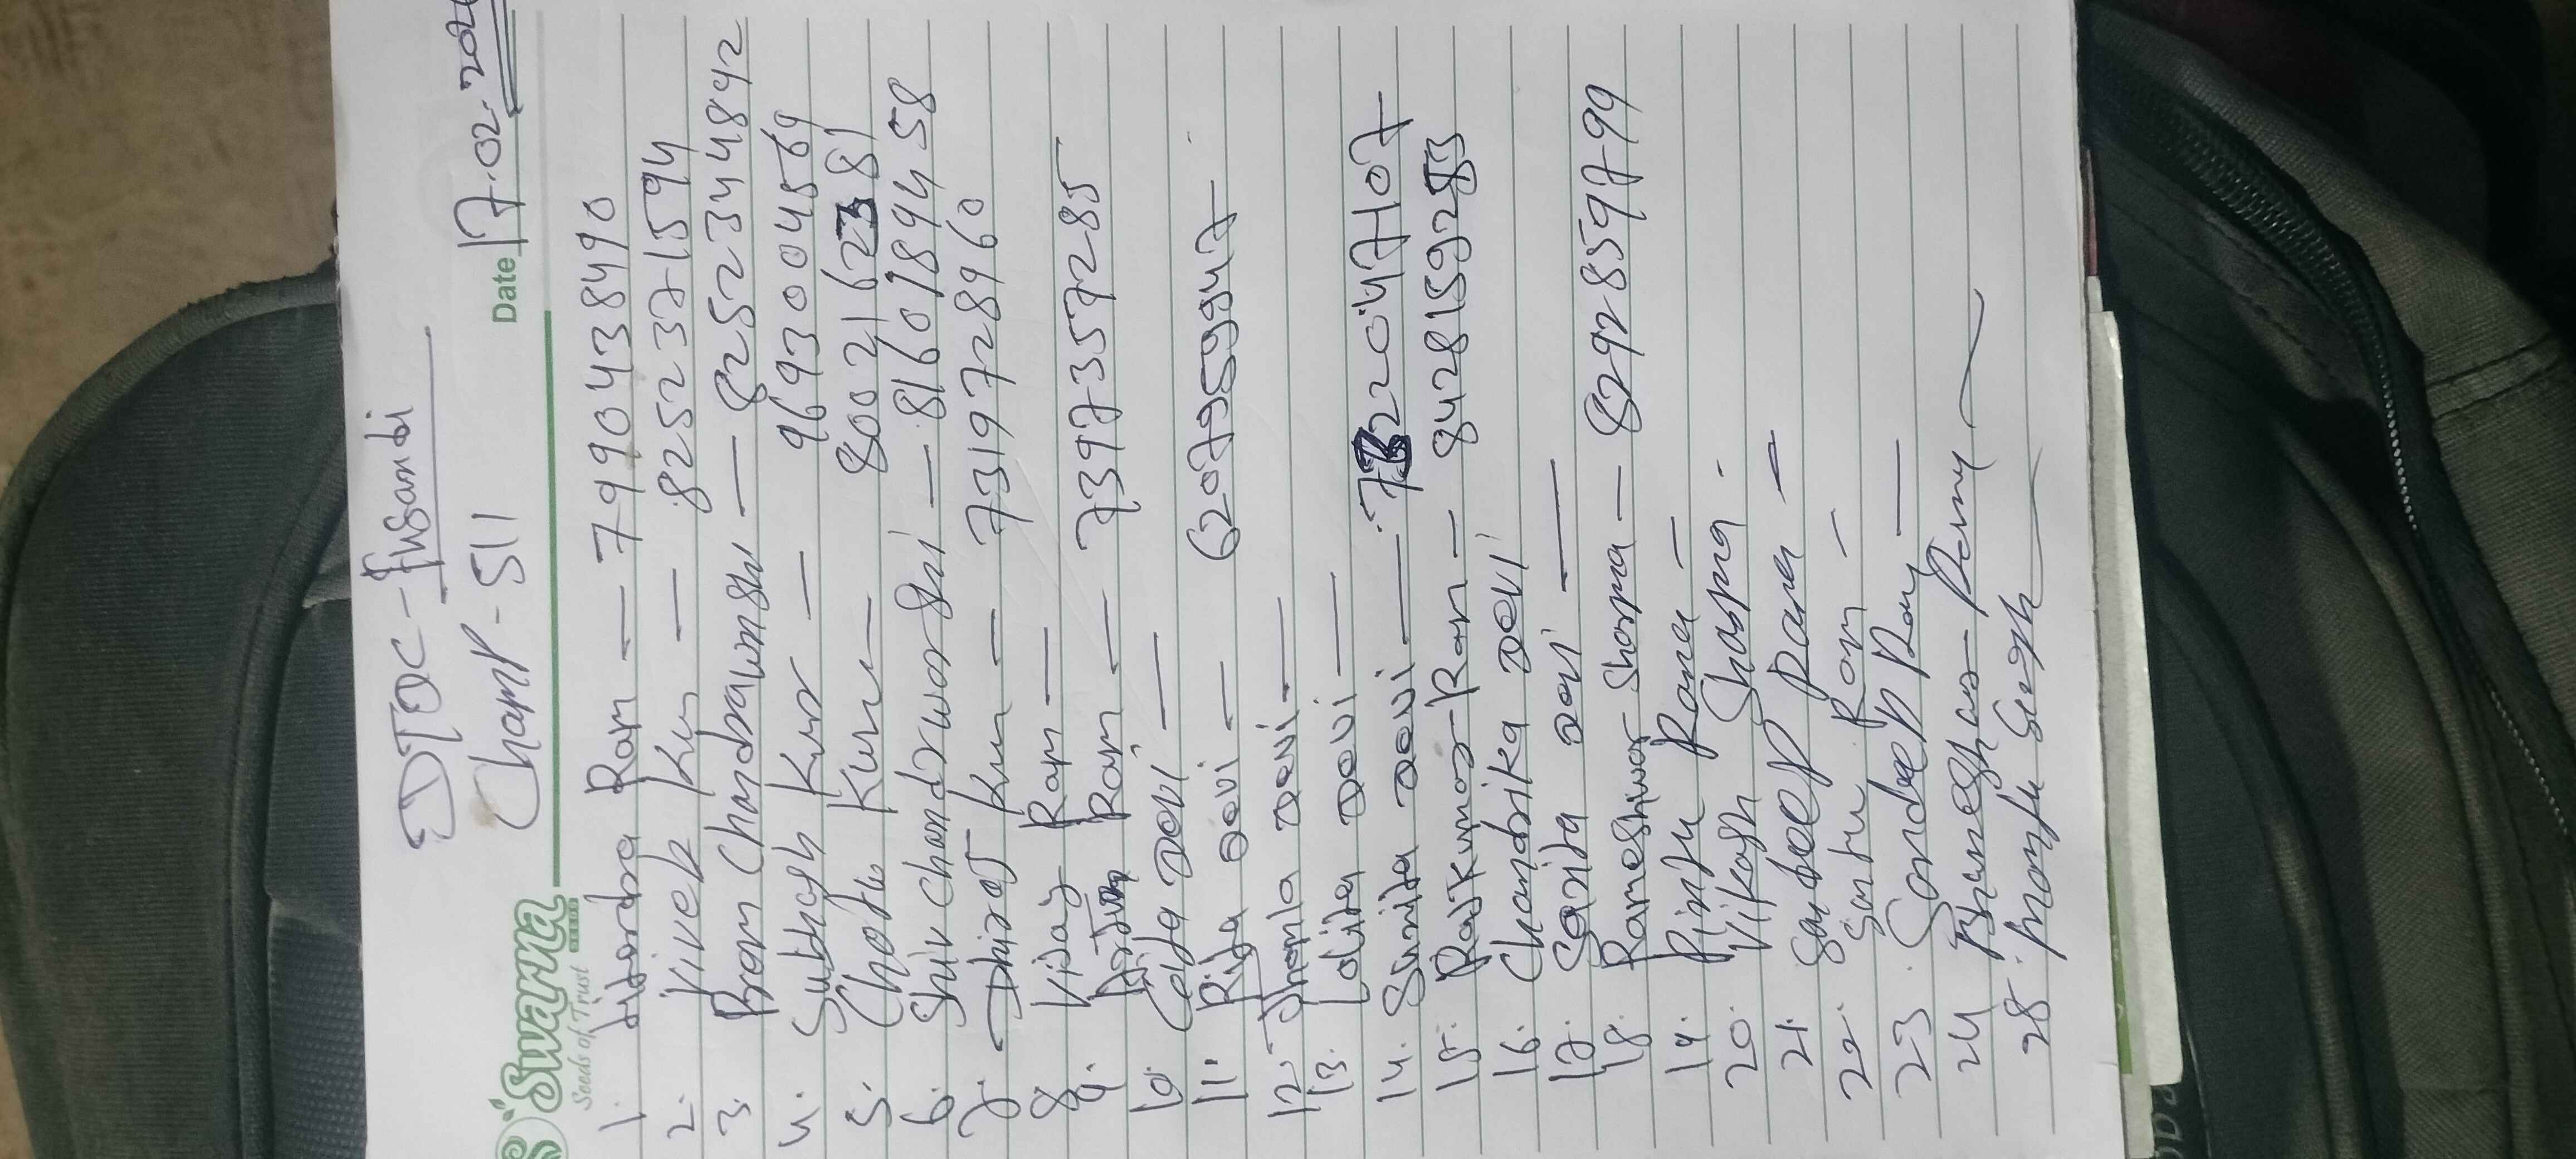 DTOC - Jusambi
Champ - 511
Swarna
SEEDS
Seeds of Trust
Date 17.02.202
1. Jitendra Ram — 7990438490
2. Vivek Kur — 8252371594
3. Pram Chandrawnshi — 82523448942
4. Subhash Kur — 9693004569
5. Chotu Kur — 8002162381
6. Shiv Chandrwarshi — 8160189458
7. Dhiraj Kur — 7319728960
8. Vijay Ram —
9. Ram — 7397357285
10. Devi —
11. Rita Devi — 6207959947
12. Devi —
13. Lalita Devi —
14. Sunita Devi — 722047107
15. RajKumar Ram — 8428159283
16. Chandrika Devi
17. Sarita Devi —
18. Rameshwar Sharma — 8292859799
19. Pintu Rana —
20. Vikash Sharma -
21. Sandeep Rana —
22. Santu Ram —
23. Sandeep Ram —
24 Bhuneshar
28. Singh